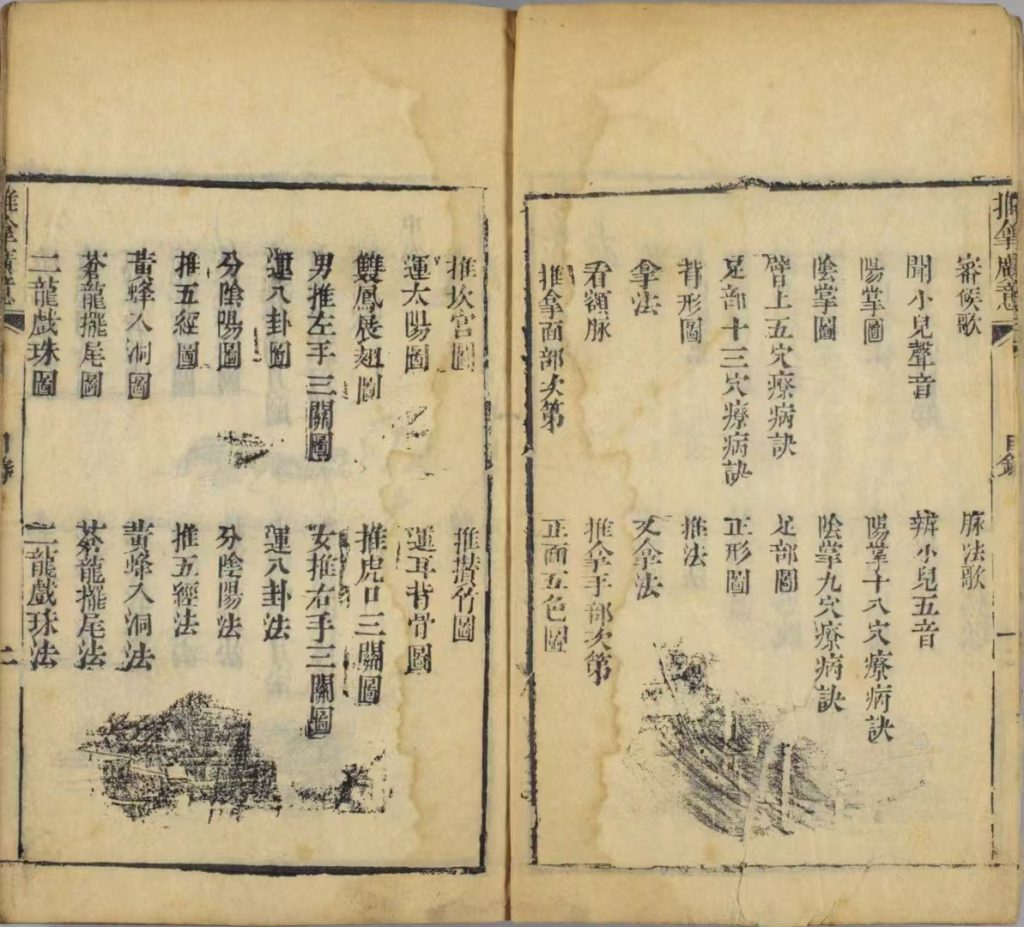 推拿廣意
目錄
一
審候歌
脉法歌
聞小兒聲音
辨小兒五音
陽掌圖
陽掌十八穴療病訣
陰掌圖
陰掌九穴療病訣
臂上五穴療病訣
足部圖
足部十三穴療病訣
正形圖
背形圖
推法
拿法
又拿法
看額脉
推拿手部次第
推拿面部次第
正面五色圖
推坎宮圖
推攅竹圖
運太陽圖
運耳背骨圖
雙鳳展翅圖
推虎口三關圖
男推左手三關圖
女推右手三關圖
運八卦圖
運八卦法
分陰陽圖
分陰陽法
推五經圖
推五經法
黃蜂入洞圖
黃蜂入洞法
蒼龍擺尾圖
蒼龍擺尾法
二龍戲珠圖
二龍戲珠法
推拿廣意
二